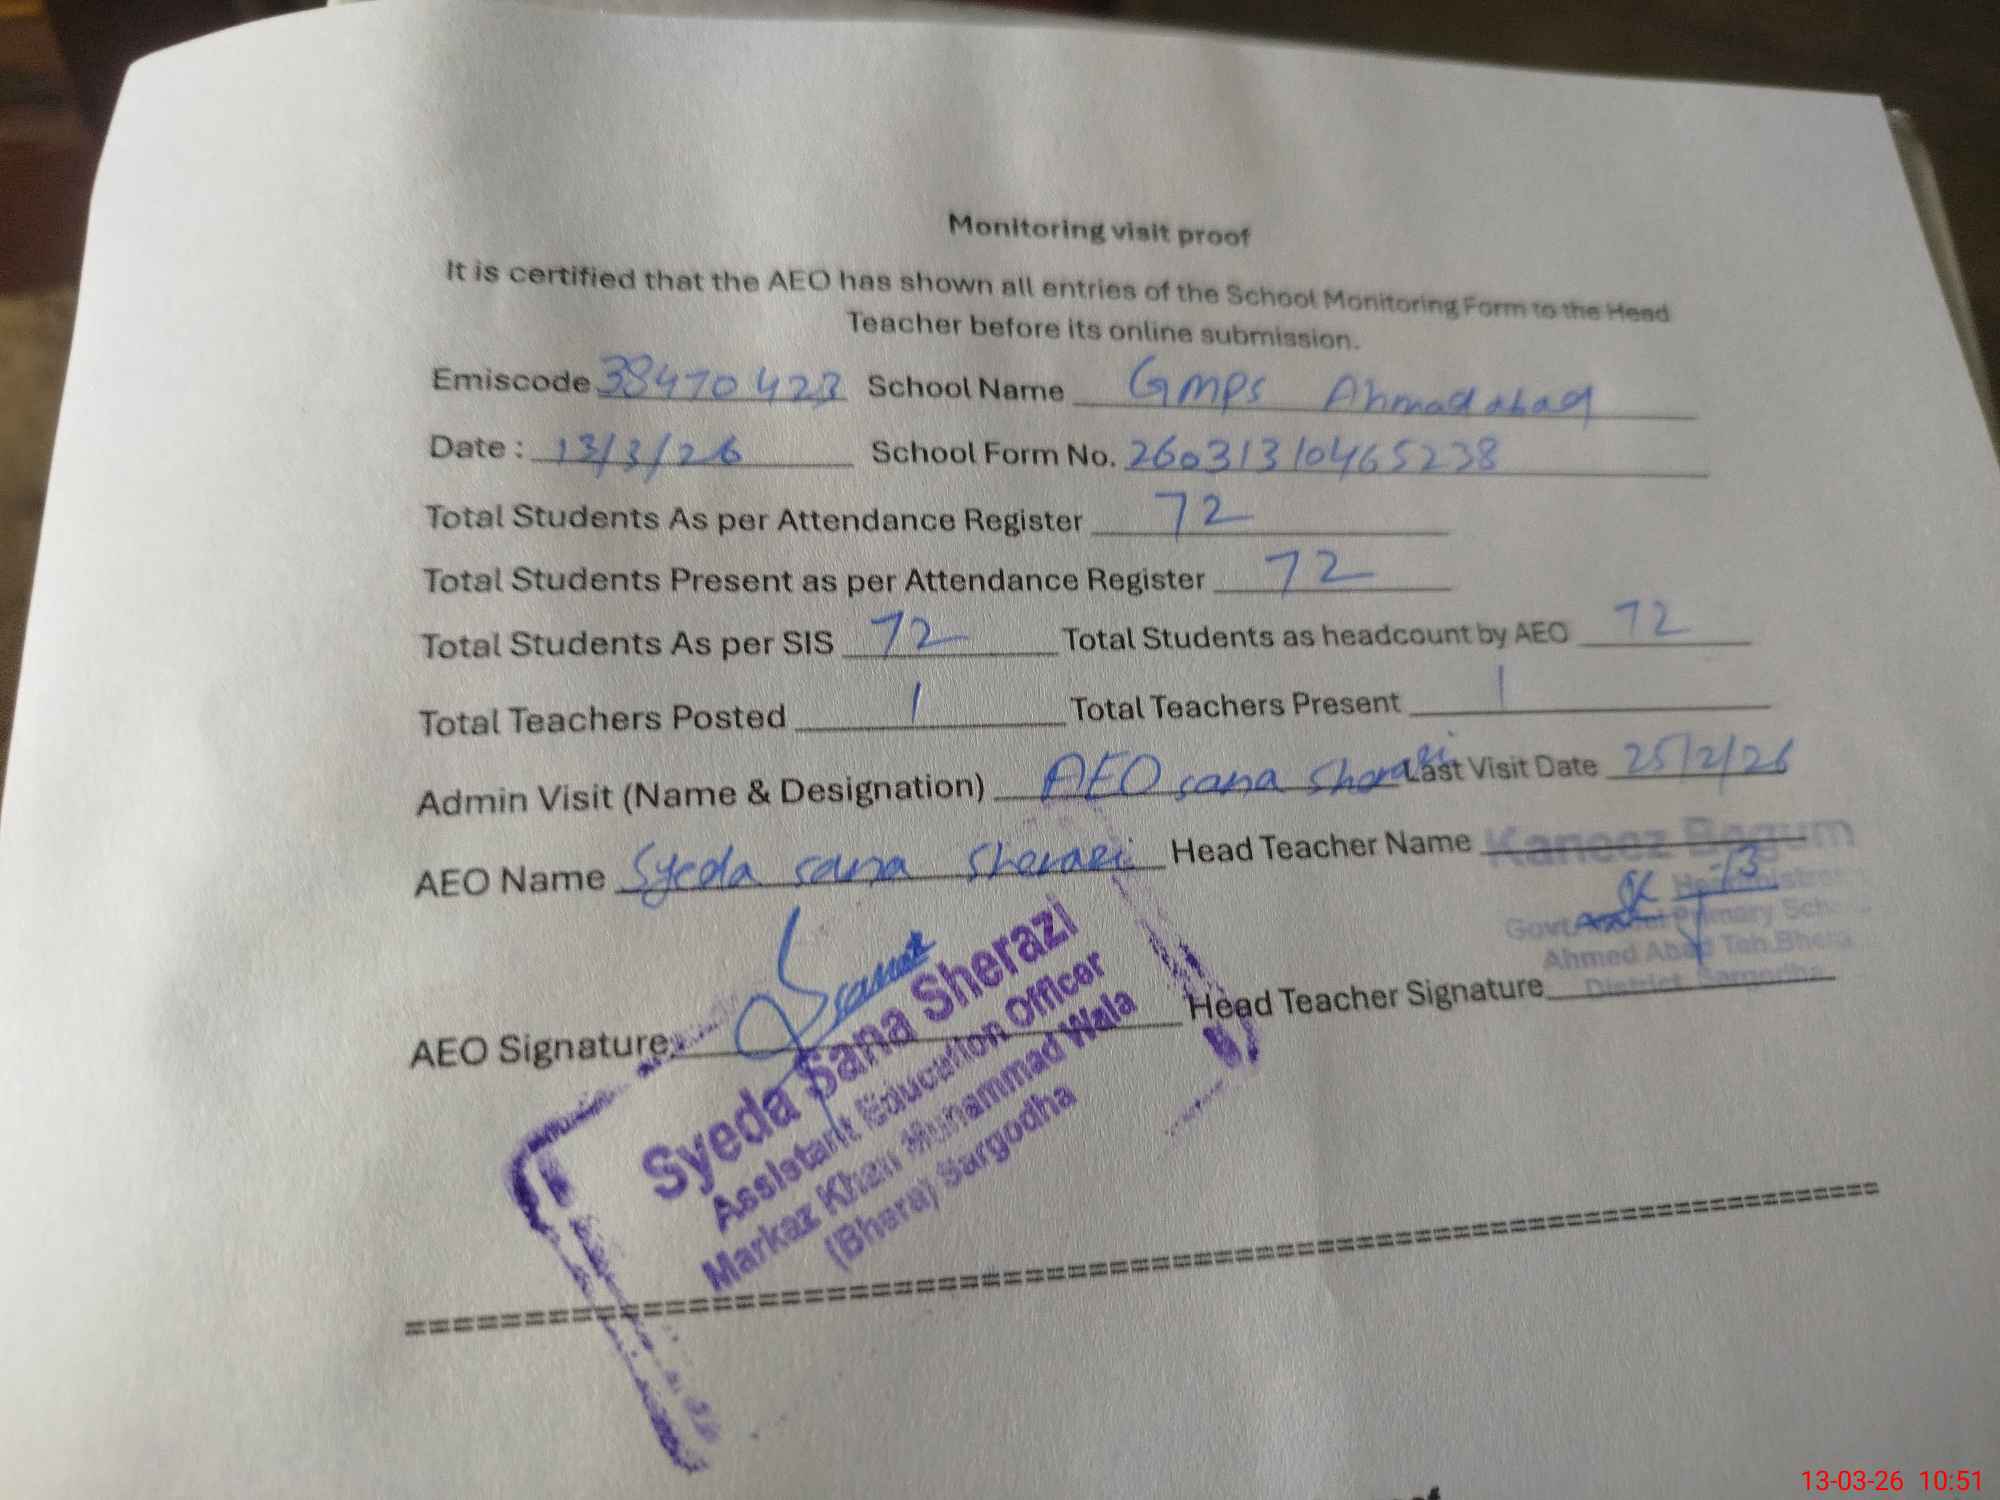 Monitoring visit proof
It is certified that the AEO has shown all entries of the School Monitoring Form to the Head
Teacher before its online submission.
Emiscode 38470423 School Name GMPS Ahmadabad
Date : 13/3/26 School Form No. 26031310465238
Total Students As per Attendance Register 72
Total Students Present as per Attendance Register 72
Total Students As per SIS 72 Total Students as headcount by AEO 72
Total Teachers Posted 1 Total Teachers Present 1
Admin Visit (Name & Designation) AEO sana Sherazi Last Visit Date 25/2/26
AEO Name Syeda sana Sherazi Head Teacher Name Kaneez Begum
Govt. Primary
Ahmed Abad Teh. Bhera
District Sargodha
AEO Signature: Head Teacher Signature
Syeda Sana Sherazi
Assistant Education Officer
Markaz Khan Muhammad Wala
(Bhera) Sargodha
13-03-26 10:51